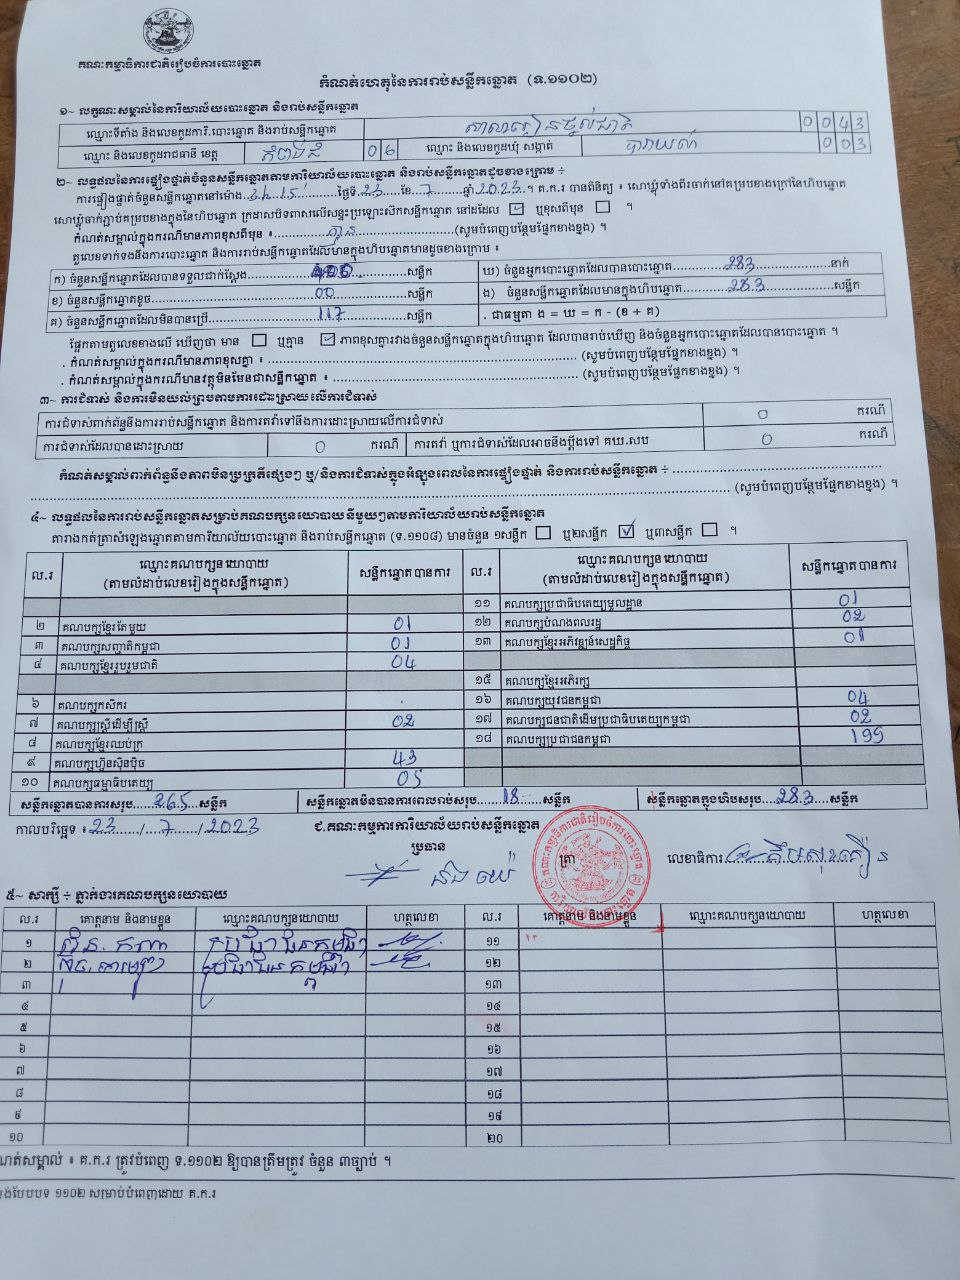 គណៈកម្មាធិការជាតិរៀបចំការបោះឆ្នោត
កំណត់ហេតុនៃការរាប់សន្លឹកឆ្នោត (ទ.១១០២)
១~ លក្ខណៈសម្គាល់នៃការិយាល័យបោះឆ្នោត និងរាប់សន្លឹកឆ្នោត
ឈ្មោះទីតាំង និងលេខកូដការិ.បោះឆ្នោត និងរាប់សន្លឹកឆ្នោត 0043
ឈ្មោះ និងលេខកូដរាជធានី ខេត្ត កំពង់ធំ 06 ឈ្មោះ និងលេខកូដឃុំ សង្កាត់ បារាយណ៍ 003
២~ លទ្ធផលនៃការផ្ទៀងផ្ទាត់ចំនួនសន្លឹកឆ្នោតតាមការិយាល័យបោះឆ្នោត និងរាប់សន្លឹកឆ្នោតដូចខាងក្រោម ÷
ការផ្ទៀងផ្ទាត់ចំនួនសន្លឹកឆ្នោតនៅម៉ោង ថ្ងៃទី 23 ខែ 7 ឆ្នាំ 2023 ។ គ.ក.រ បានពិនិត្យ ៖ សោឃ្លុំទាំងពីរចាក់នៅគម្របខាងក្រៅនៃហិបឆ្នោត
សោឃ្លុំចាក់ភ្ជាប់គម្របខាងក្នុងនៃហិបឆ្នោត ក្រដាសបិទពាសលើសន្ទះប្រឡោះសៀកសន្លឹកឆ្នោត នៅដដែល ☑ ឬខុសពីមុន ☐ ។
កំណត់សម្គាល់ក្នុងករណីមានភាពខុសពីមុន ៖ គ្មាន (សូមបំពេញបន្ថែមផ្នែកខាងខ្នង) ។
តួលេខទាក់ទងនឹងការបោះឆ្នោត និងការរាប់សន្លឹកឆ្នោតដែលមានក្នុងហិបឆ្នោតមានដូចខាងក្រោម ៖
ក) ចំនួនសន្លឹកឆ្នោតដែលបានទទួលជាក់ស្តែង 400 សន្លឹក ឃ) ចំនួនអ្នកបោះឆ្នោតដែលបានបោះឆ្នោត 283 នាក់
ខ) ចំនួនសន្លឹកឆ្នោតខូច 00 សន្លឹក ង) ចំនួនសន្លឹកឆ្នោតដែលមានក្នុងហិបឆ្នោត 283 សន្លឹក
គ) ចំនួនសន្លឹកឆ្នោតដែលមិនបានប្រើ 117 សន្លឹក . ជាធម្មតា ង = ឃ = ក - (ខ + គ)
ផ្អែកតាមតួលេខខាងលើ ឃើញថា មាន ☐ ឬគ្មាន ☑ ភាពខុសគ្នារវាងចំនួនសន្លឹកឆ្នោតក្នុងហិបឆ្នោត ដែលបានរាប់ឃើញ និងចំនួនអ្នកបោះឆ្នោតដែលបានបោះឆ្នោត ។
. កំណត់សម្គាល់ក្នុងករណីមានភាពខុសគ្នា ៖ (សូមបំពេញបន្ថែមផ្នែកខាងខ្នង) ។
. កំណត់សម្គាល់ក្នុងករណីមានវត្ថុមិនមែនជាសន្លឹកឆ្នោត ៖ (សូមបំពេញបន្ថែមផ្នែកខាងខ្នង) ។
៣~ ការជំទាស់ និងការមិនយល់ព្រមតាមការដោះស្រាយលើការជំទាស់
ការជំទាស់ពាក់ព័ន្ធនឹងការរាប់សន្លឹកឆ្នោត និងការតវ៉ាទៅនឹងការដោះស្រាយលើការជំទាស់ 0 ករណី
ការជំទាស់ដែលបានដោះស្រាយ 0 ករណី ការតវ៉ា ឬការជំទាស់ដែលអាចនឹងប្តឹងទៅ គឃ.សប 0 ករណី
កំណត់សម្គាល់ពាក់ព័ន្ធនឹងភាពមិនប្រក្រតីផ្សេងៗ ឬ/និងការជំទាស់ក្នុងអំឡុងពេលនៃការផ្ទៀងផ្ទាត់ និងការរាប់សន្លឹកឆ្នោត ÷
(សូមបំពេញបន្ថែមផ្នែកខាងខ្នង) ។
៤~ លទ្ធផលនៃការរាប់សន្លឹកឆ្នោតសម្រាប់គណបក្សនយោបាយនីមួយៗតាមការិយាល័យរាប់សន្លឹកឆ្នោត
តារាងកត់ត្រាសំឡេងឆ្នោតតាមការិយាល័យបោះឆ្នោត និងរាប់សន្លឹកឆ្នោត (ទ.១១០៨) មានចំនួន ១សន្លឹក ☐ ឬ២សន្លឹក ☑ ឬ៣សន្លឹក ☐ ។
ល.រ ឈ្មោះគណបក្សនយោបាយ (តាមលំដាប់លេខរៀងក្នុងសន្លឹកឆ្នោត) សន្លឹកឆ្នោតបានការ ល.រ ឈ្មោះគណបក្សនយោបាយ (តាមលំដាប់លេខរៀងក្នុងសន្លឹកឆ្នោត) សន្លឹកឆ្នោតបានការ
១១ គណបក្សប្រជាធិបតេយ្យមូលដ្ឋាន 01
២ គណបក្សខ្មែរតែមួយ 01 ១២ គណបក្សបំណងពលរដ្ឋ 02
៣ គណបក្សសញ្ជាតិកម្ពុជា 01 ១៣ គណបក្សខ្មែរអភិវឌ្ឍន៍សេដ្ឋកិច្ច 01
៤ គណបក្សខ្មែររួបរួមជាតិ 04
១៥ គណបក្សខ្មែរអភិរក្ស
៦ គណបក្សកសិករ . ១៦ គណបក្សយុវជនកម្ពុជា 04
៧ គណបក្សស្ត្រីដើម្បីស្ត្រី 02 ១៧ គណបក្សជនជាតិដើមប្រជាធិបតេយ្យកម្ពុជា 02
៨ គណបក្សខ្មែរឈប់ក្រ ១៨ គណបក្សប្រជាជនកម្ពុជា 199
៩ គណបក្សហ្វ៊ុនស៊ិនប៉ិច 43
១០ គណបក្សធម្មាធិបតេយ្យ 05
សន្លឹកឆ្នោតបានការសរុប 265 សន្លឹក សន្លឹកឆ្នោតមិនបានការពេលរាប់សរុប 18 សន្លឹក សន្លឹកឆ្នោតក្នុងហិបសរុប 283 សន្លឹក
កាលបរិច្ឆេទ ៖ 23 / 7 / 2023 ជ.គណៈកម្មការការិយាល័យរាប់សន្លឹកឆ្នោត
ប្រធាន ត្រា លេខាធិការ
៥~ សាក្សី ÷ ភ្នាក់ងារគណបក្សនយោបាយ
ល.រ គោត្តនាម និងនាមខ្លួន ឈ្មោះគណបក្សនយោបាយ ហត្ថលេខា ល.រ គោត្តនាម និងនាមខ្លួន ឈ្មោះគណបក្សនយោបាយ ហត្ថលេខា
១ ប្រជាជនកម្ពុជា ១១
២ ប្រជាជនកម្ពុជា ១២
៣ ១៣
៤ ១៤
៥ ១៥
៦ ១៦
៧ ១៧
៨ ១៨
៩ ១៩
១០ ២០
ណត់សម្គាល់ ៖ គ.ក.រ ត្រូវបំពេញ ទ.១១០២ ឱ្យបានត្រឹមត្រូវ ចំនួន ៣ច្បាប់ ។
ទម្រង់បែបបទ ១១០២ សម្រាប់បំពេញដោយ គ.ក.រ